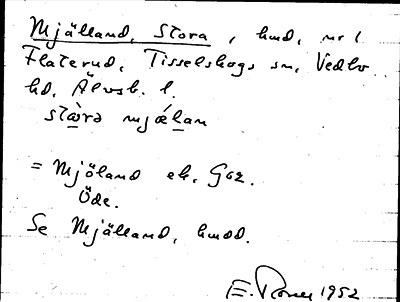 Mjälland, Stora, hmd, nr 1
Flaterud, Tisselskogs sn, Vedbo
hd, Älvsb. l.
stæ̀ra mjǽlan
= Mjöland ek. Gaz.
Öde.
Se Mjälland, hmdd.
E. 1952